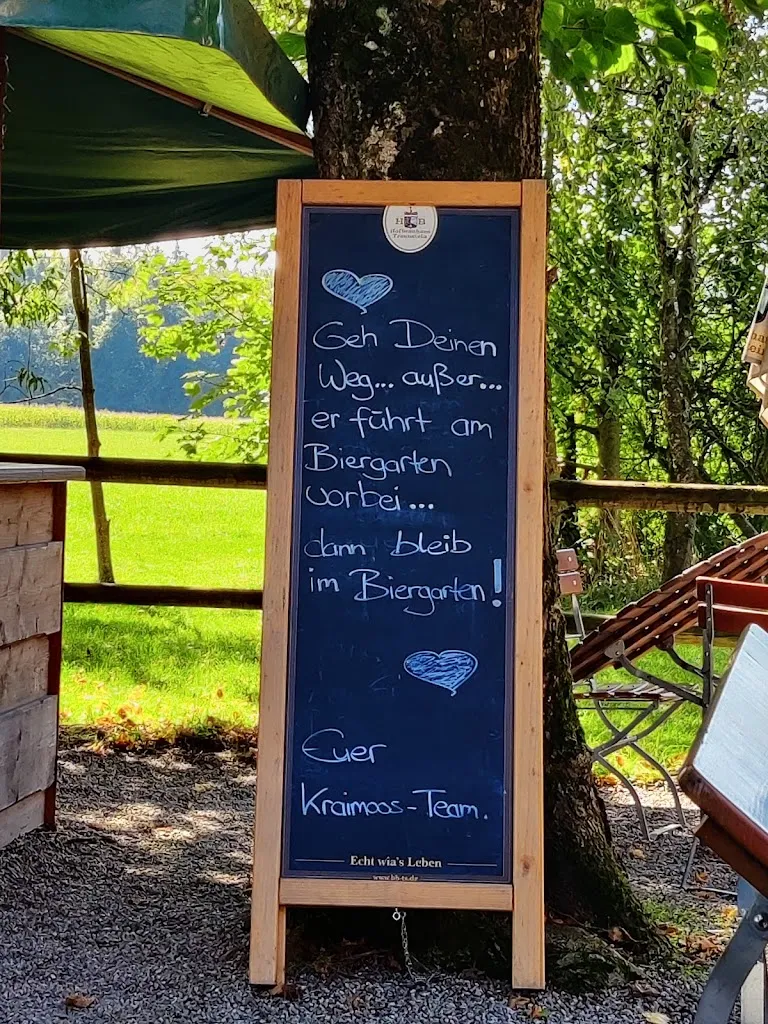 H B
Hofbräuhaus
Traunstein
Geh Deinen
Weg... außer...
er führt am
Biergarten
vorbei...
dann bleib
im Biergarten!
Euer
Kraimoos-Team.
Echt wia's Leben
www.hb-ts.de